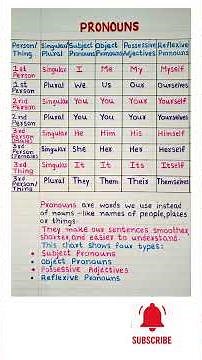 PRONOUNS
Person/Thing Singular/Plural Subject Pronouns Object Pronouns Possessive Adjectives Reflexive Pronouns
1st Person Singular I Me My Myself
1st Person Plural We Us Our Ourselves
2nd Person Singular You You Your Yourself
2nd Person Plural You You Your Yourselves
3rd Person (Male) Singular He Him His Himself
3rd Person (Female) Singular She Her Her Herself
3rd Thing Singular It It Its Itself
3rd Person/Thing Plural They Them Their Themselves
Pronouns are words we use instead
of nouns - like names of people, places
or things.
They make our sentences smoother,
shorter and easier to understand.
This chart shows four types:
• Subject Pronouns
• Object Pronouns
• Possessive Adjectives
• Reflexive Pronouns
SUBSCRIBE